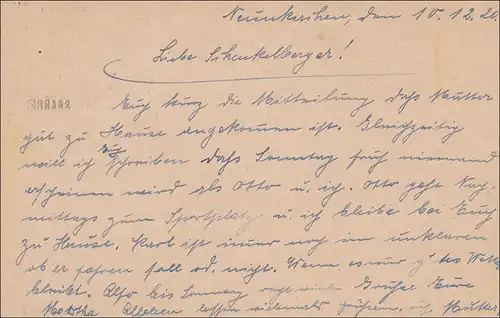 Neunkirchen, den 10.12.20.
Liebe Schenkelberger!
Euch kurz die Mitteilung dass Mutter
gut zu Hause angekommen ist. Gleichzeitig
will ich Euch schreiben dass Sonntag früh niemand
erscheinen wird als Otto u. ich. Otto geht Nach-
mittags zum Sportplatz u. ich bleibe bei Euch
zu Hause. Karl ist immer noch im unklaren
ob er fahren soll od. nicht. Wenn es nur
bleibt. Also bis Sonntag Grüße Eure
Martha Alleben lassen vielmals grüßen, Mutter